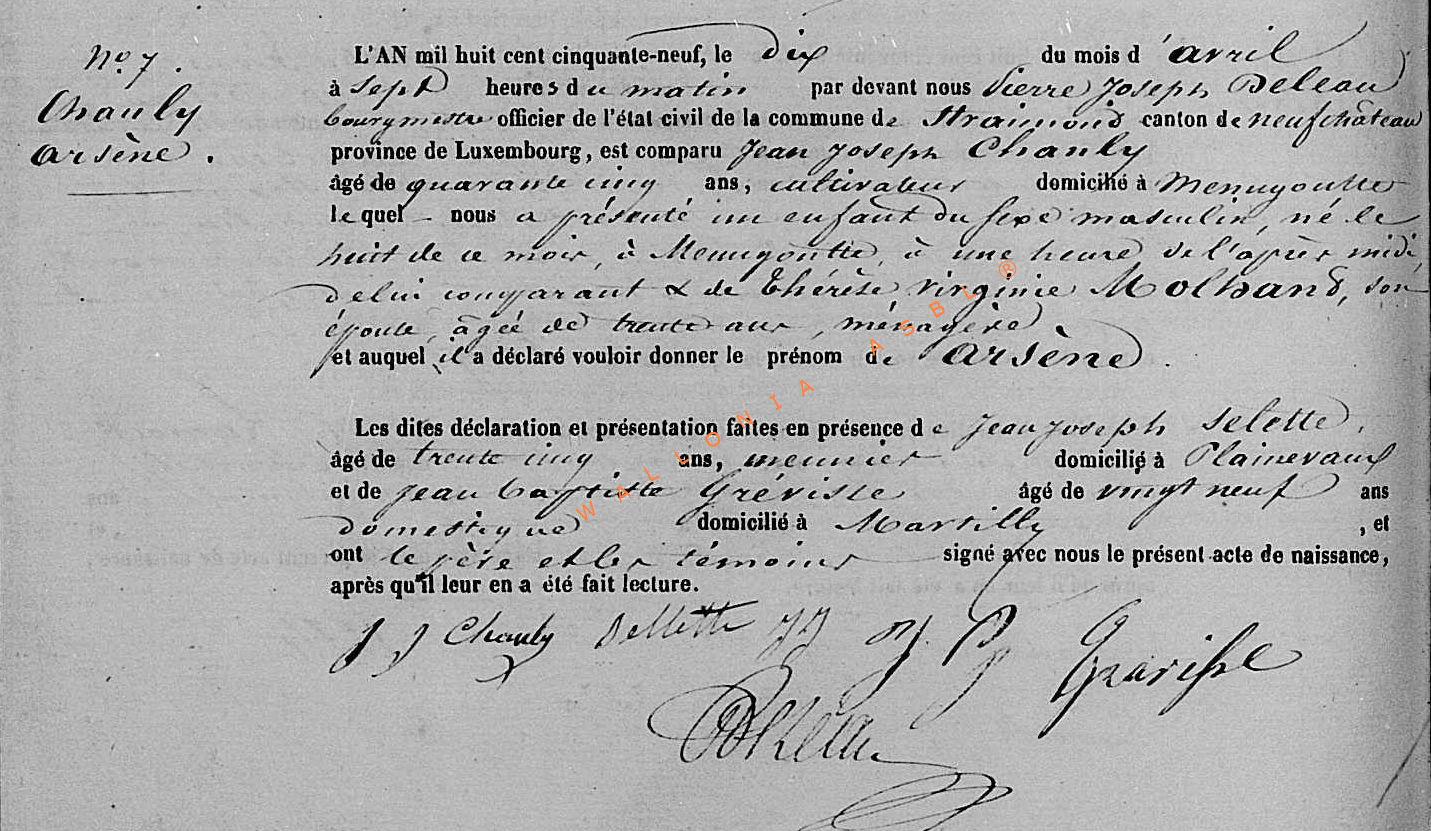 No 7.
Chanly
arsène.
L'AN mil huit cent cinquante-neuf, le dix du mois d'avril
à sept heures du matin par devant nous Pierre Joseph Deleau
bourgmestre officier de l'état civil de la commune de Straimond canton de neufchâteau
province de Luxembourg, est comparu Jean Joseph Chanly
âgé de quarante cinq ans, cultivateur domicilié à Menugoutte
lequel nous a présenté un enfant du sexe masculin, né le
huit de ce mois, à Menugoutte, à une heure de l'après midi,
de lui comparant & de Thérèse, Virginie Molhand, son
épouse, âgée de trente ans, ménagère
et auquel il a déclaré vouloir donner le prénom de arsène.
Les dites déclaration et présentation faites en présence de Jean Joseph Selette,
âgé de trente cinq ans, meunier domicilié à Plainevaux
et de Jean baptiste Gréviste âgé de vingt neuf ans
domestique domicilié à Martilly, et
ont le père et les témoins signé avec nous le présent acte de naissance,
après qu'il leur en a été fait lecture.
J J Chanly Dellette JJ J. B Gravisse
Deleau
WALLONIA ASBL ®